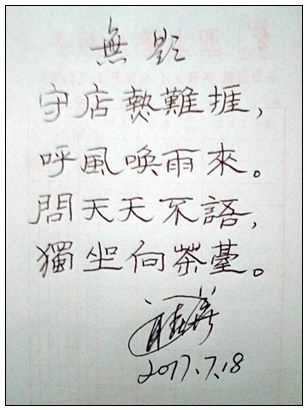 無題
守店熱難捱，
呼風喚雨來。
問天天不語，
獨坐向茶臺。
2017.7.18